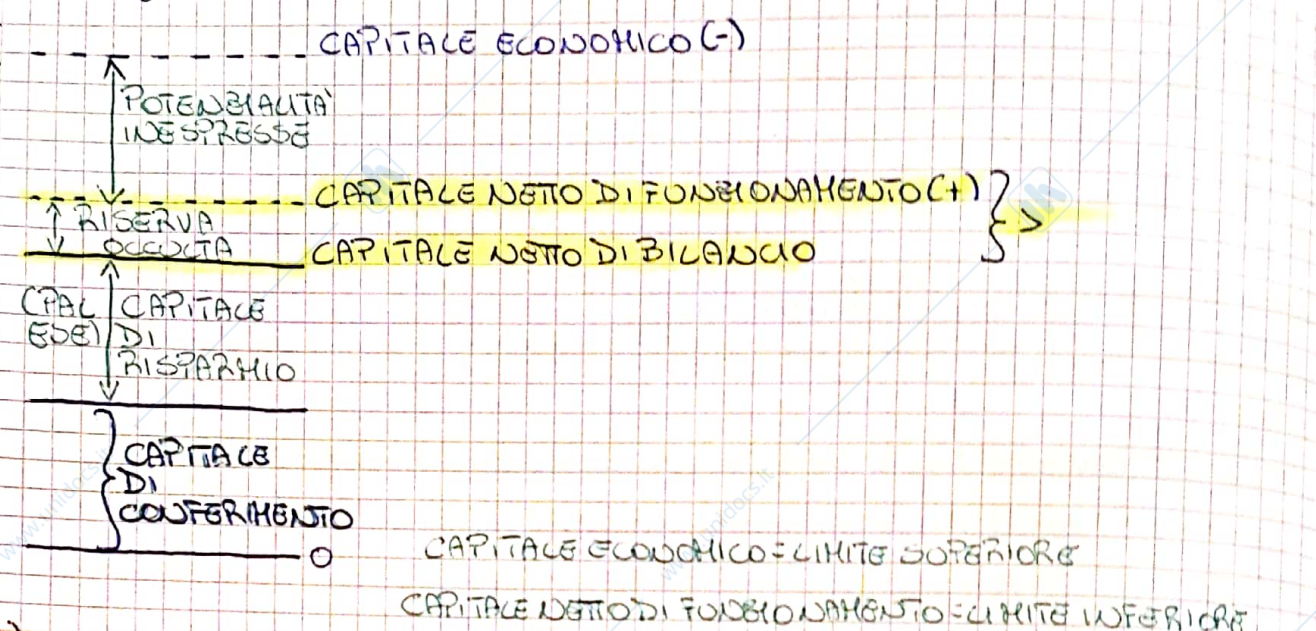 CAPITALE ECONOMICO (-)
POTENZIALITÀ
INESPRESSE
CAPITALE NETTO DI FUNZIONAMENTO (+)
>
RISERVA
OCCULTA
CAPITALE NETTO DI BILANCIO
(PAL
ESE)
CAPITALE
DI
RISPARMIO
CAPITALE
DI
CONFERIMENTO
0
CAPITALE ECONOMICO = LIMITE SUPERIORE
CAPITALE NETTO DI FUNZIONAMENTO = LIMITE INFERIORE
www.unidocs.it
www.unidocs.it